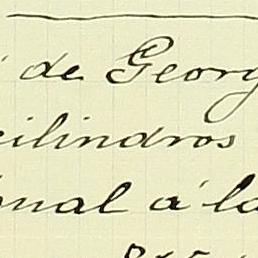 de Georg
cilindros
onal á la